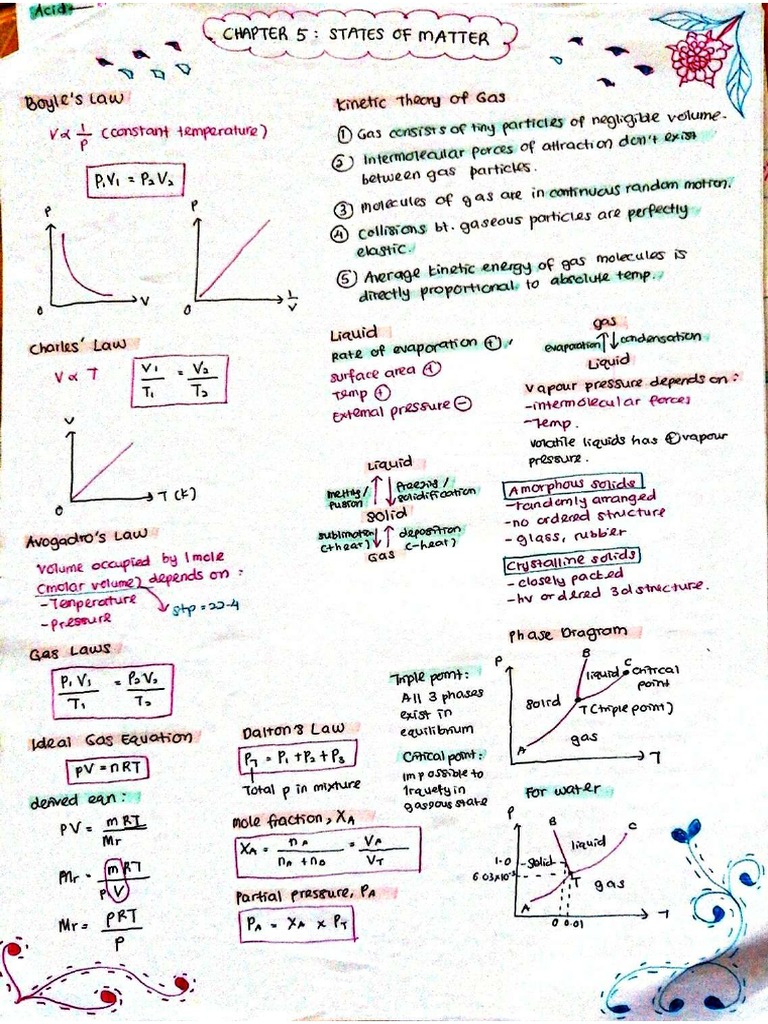 Acid
CHAPTER 5: STATES OF MATTER
Boyle's Law
V ∝ 1/P (constant temperature)
P₁V₁ = P₂V₂
P
0
V
P
0
1/V
Charles' Law
V ∝ T
V₁/T₁ = V₂/T₂
V
0
T (K)
Avogadro's Law
Volume occupied by 1 mole
(molar volume) depends on :
- Temperature
- Pressure
stp = 22.4
Gas Laws
P₁V₁/T₁ = P₂V₂/T₂
Ideal Gas Equation
PV = nRT
derived eqn :
PV = mRT/Mr
Mr = mRT/PV
Mr = ρRT/P
Kinetic Theory of Gas
① Gas consists of tiny particles of negligible volume.
② Intermolecular forces of attraction don't exist
between gas particles.
③ Molecules of gas are in continuous random motion.
④ Collisions bt. gaseous particles are perfectly
elastic.
⑤ Average kinetic energy of gas molecules is
directly proportional to absolute temp.
Liquid
Rate of evaporation ⊕,
surface area ⊕
Temp ⊕
External pressure ⊖
gas
evaporation ↑↓ condensation
Liquid
Vapour pressure depends on :
- intermolecular forces
- Temp.
Volatile liquids has ⊕ vapour
pressure.
Liquid
melting/
fusion
↑↓
freezing /
solidification
solid
sublimation
(+heat)
↓↑
deposition
(-heat)
Gas
Amorphous solids
- randomly arranged
- no ordered structure
- glass, rubber
Crystalline solids
- closely packed
- hv ordered 3d structure.
Dalton's Law
P_T = P₁ + P₂ + P₃
Total p in mixture
Mole fraction, X_A
X_A = n_A/(n_A + n_B) = V_A/V_T
Partial pressure, P_A
P_A = X_A × P_T
Triple point:
All 3 phases
exist in
equilibrium
Critical point:
impossible to
liquefy in
gaseous state
Phase Diagram
P
B
liquid
C critical
point
solid
T (triple point)
A
gas
T
For water
P
B
C
liquid
1.0
solid
6.03x10⁻³
T
gas
A
0 0.01
T